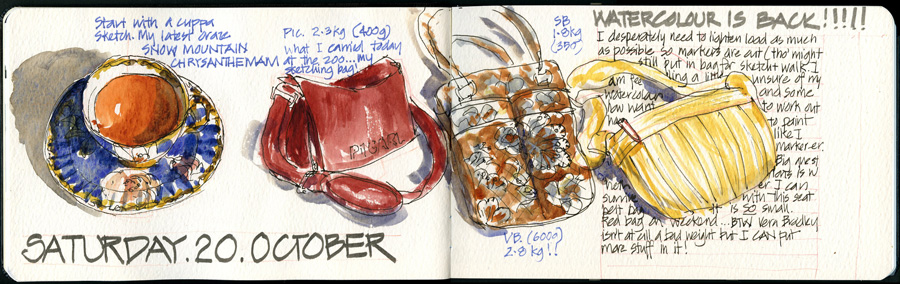 Start with a cuppa
sketch. My latest craze
SNOW MOUNTAIN
CHRYSANTHEMAM
Pic. 2.3kg (400g)
what I carried today
at the zoo...my
sketching bag!
PiCARD
SATURDAY.20.OCTOBER
SB
1.8kg
(350)
VB. (600g)
2.8kg!!
WATERCOLOUR IS BACK!!!!!
I desperately need to lighten load as much
as possible so markers are out (tho' might
still put in bag for sketch walk. I
am feeling a little unsure of my
watercolour and some
how want to work out
how to paint
like I
marker-er.
Big quest
is w
er I can
survive with this seat
belt it is so small.
Red bag on weekend... BTW Vera Bradley
isn't at all a bad weight but I CAN put
more stuff in it!